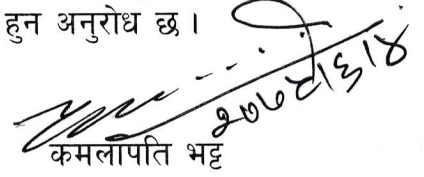 हुन अनुरोध छ।
२०७८।६।४
कमलापति भट्ट